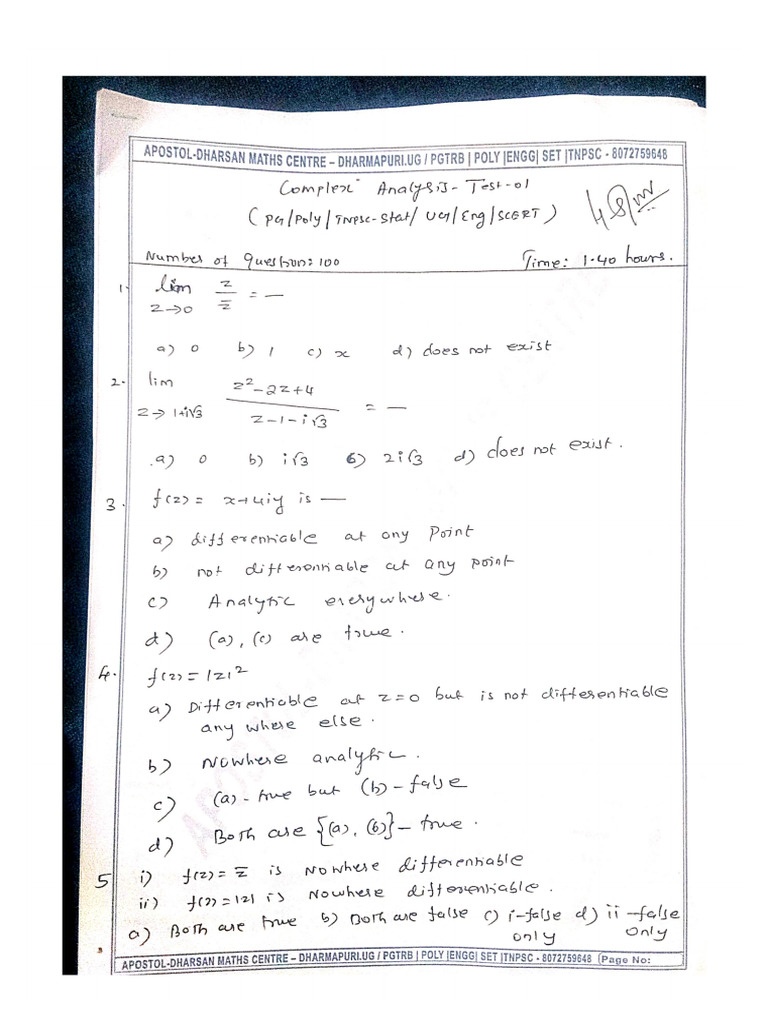 APOSTOL-DHARSAN MATHS CENTRE – DHARMAPURI.UG / PGTRB | POLY |ENGG| SET |TNPSC - 8072759648
Complex Analysis - Test-01
(PG/Poly/TNPSC-Stat/UG/Eng/SCERT)
Number of Question: 100 Time: 1.40 hours.
1. lim z→0 z/z̅ = —
a) 0 b) 1 c) x d) does not exist
2. lim z→1+i√3 (z²-2z+4)/(z-1-i√3) = —
a) 0 b) i√3 c) 2i√3 d) does not exist.
3. f(z) = x+4iy is —
a) differentiable at any Point
b) not differentiable at any point
c) Analytic everywhere.
d) (a), (c) are true.
4. f(z) = |z|²
a) Differentiable at z=0 but is not differentiable
any where else.
b) Nowhere analytic.
c) (a)-true but (b)-false
d) Both are {(a), (b)} - true.
5 i) f(z) = z̅ is Nowhere differentiable
ii) f(z) = |z| is Nowhere differentiable.
a) Both are true b) Both are false c) i-false d) ii-false
only only
APOSTOL-DHARSAN MATHS CENTRE – DHARMAPURI.UG / PGTRB | POLY |ENGG| SET |TNPSC - 8072759648 (Page No:
APOSTOL